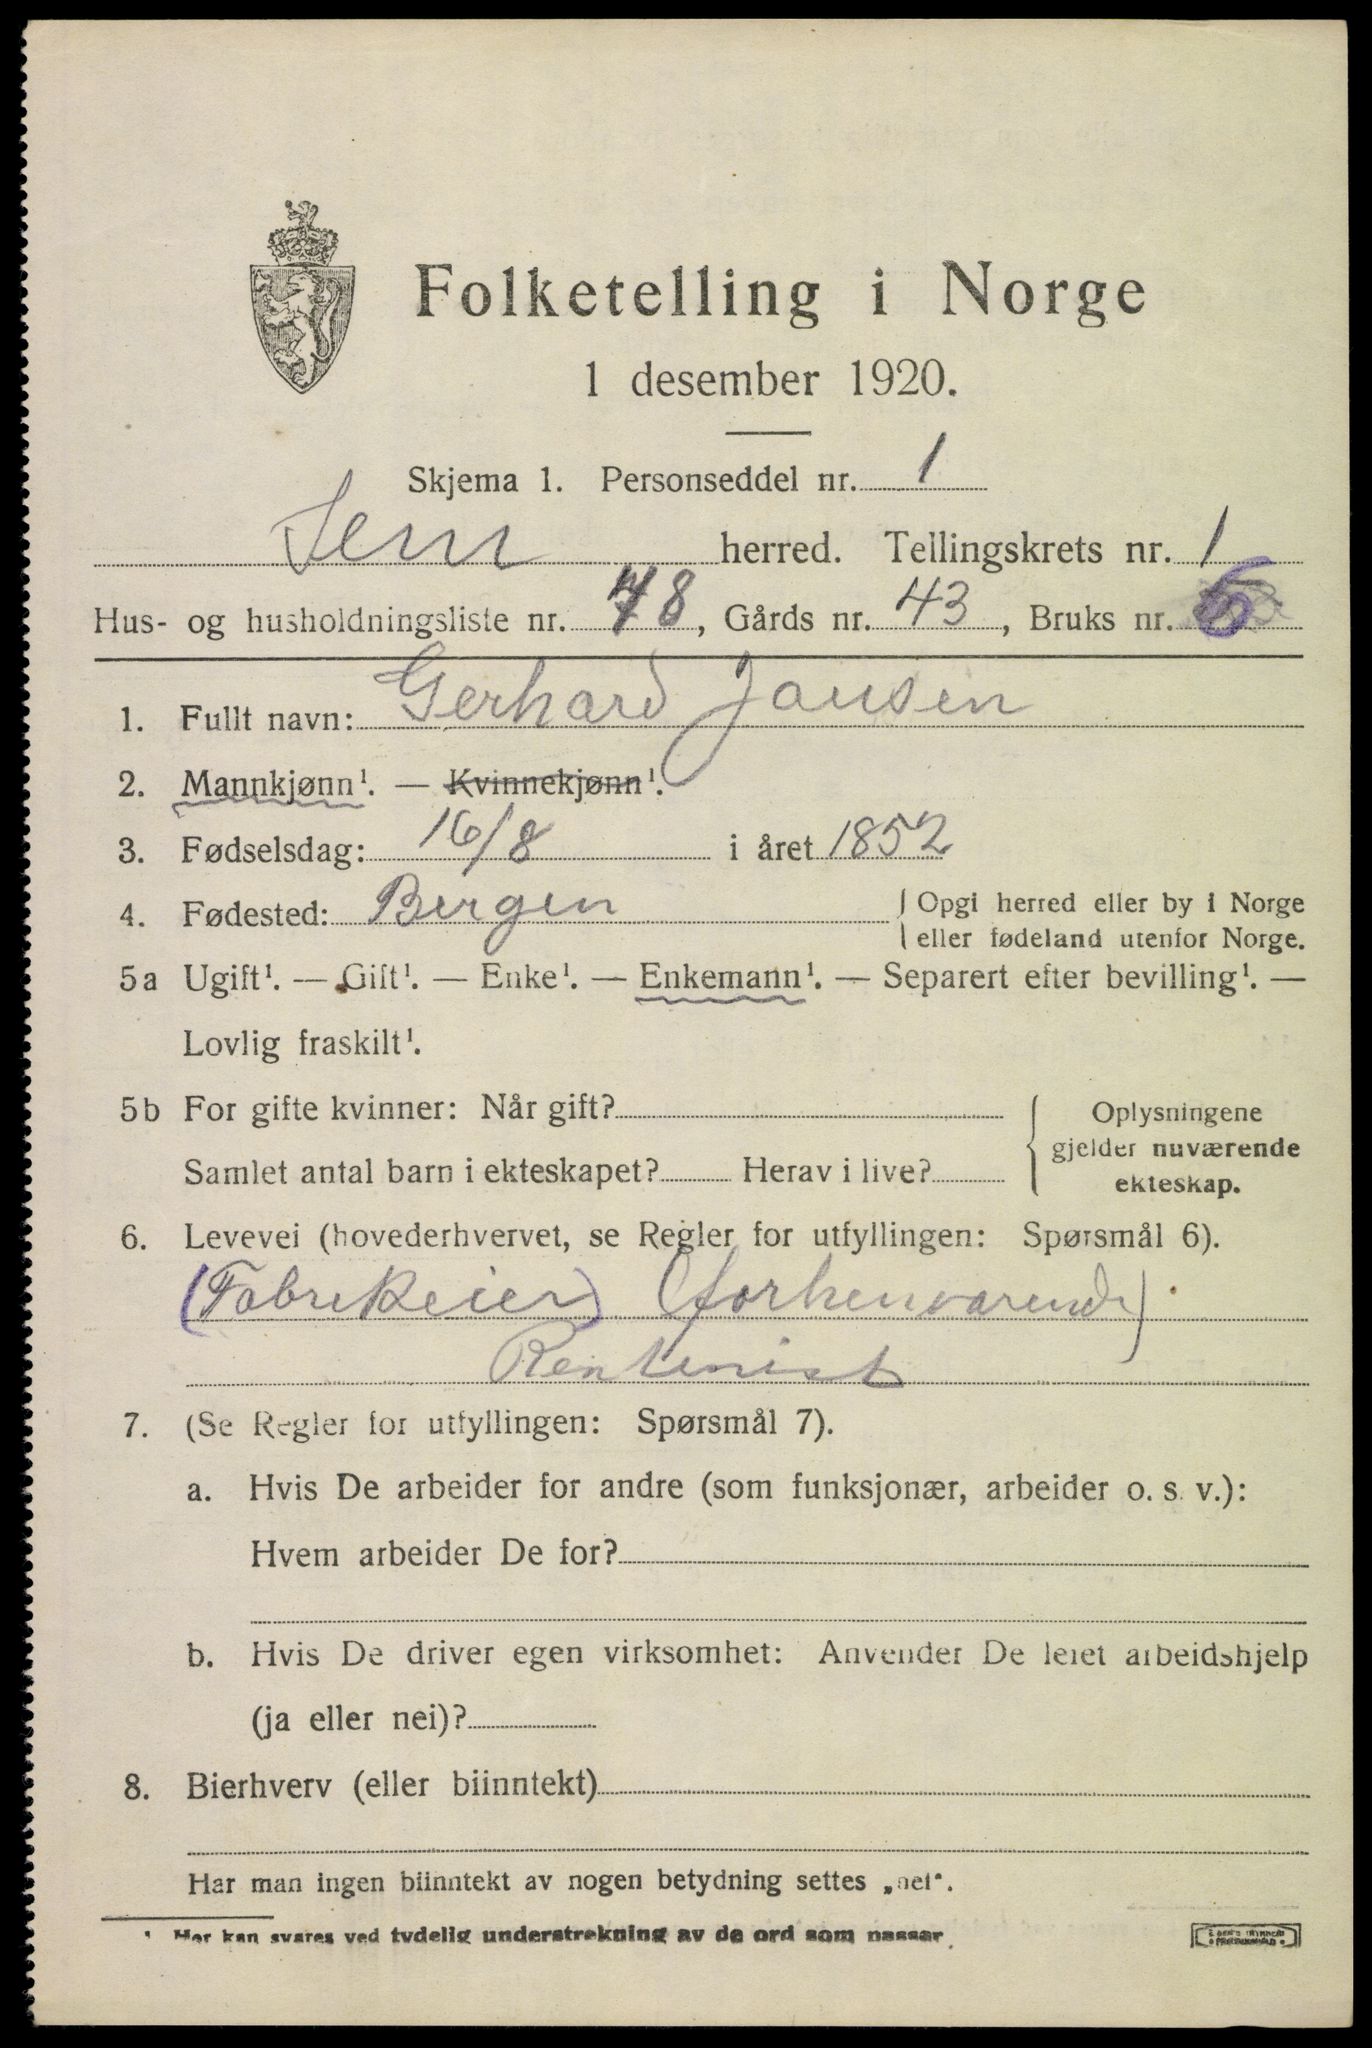 Folketelling i Norge
1 desember 1920.
Skjema 1. Personseddel nr. 1
Sem herred. Tellingskrets nr. 1
Hus- og husholdningsliste nr. 78, Gårds nr. 43, Bruks nr. 6
1. Fullt navn: Gerhard Jansen
2. Mannkjønn¹. — Kvinnekjønn¹.
3. Fødselsdag: 16/8 i året 1852
4. Fødested: Bergen { Opgi herred eller by i Norge
eller fødeland utenfor Norge.
5a Ugift¹. — Gift¹. — Enke¹. — Enkemann¹. — Separert efter bevilling¹. —
Lovlig fraskilt¹.
5b For gifte kvinner: Når gift? { Oplysningene
gjelder nuværende
Samlet antal barn i ekteskapet? Herav i live?
ekteskap.
6. Levevei (hovederhvervet, se Regler for utfyllingen: Spørsmål 6).
(Fabrikeier) (forhenværende)
Rentenist
7. (Se Regler for utfyllingen: Spørsmål 7).
a. Hvis De arbeider for andre (som funksjonær, arbeider o. s. v.):
Hvem arbeider De for?
b. Hvis De driver egen virksomhet: Anvender De leiet arbeidshjelp
(ja eller nei)?
8. Bierhverv (eller biinntekt)
Har man ingen biinntekt av nogen betydning settes „nei".
¹ Her kan svares ved tydelig understrekning av de ord som passer.